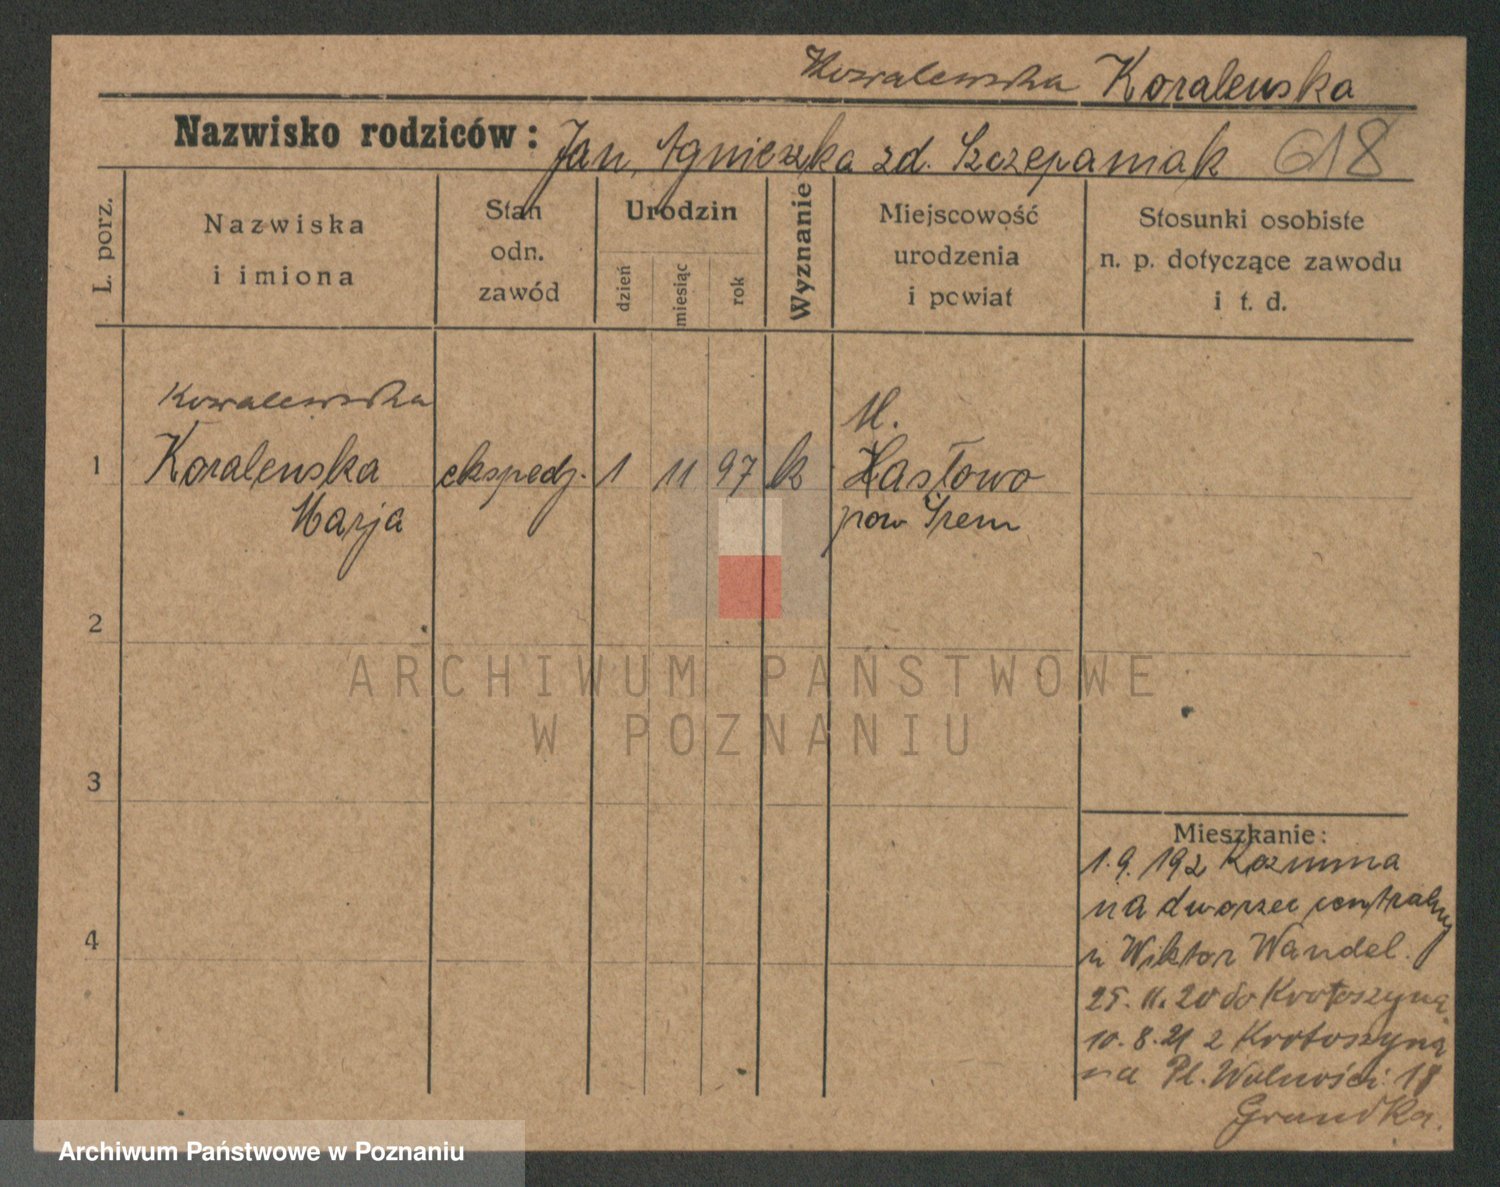 Kowalewska Koralewska
Nazwisko rodziców: Jan, Agnieszka zd. Szczepaniak 618
L. porz.
Nazwiska
i imiona
Stan
odn.
zawód
Urodzin
dzień
miesiąc
rok
Wyznanie
Miejscowość
urodzenia
i powiat
Stosunki osobiste
n. p. dotyczące zawodu
i t. d.
Kowalewska
M.
1 Koralewska ekspedj. 1 11 97 k Hasłowo
Marja pow Śrem
2
ARCHIWUM PAŃSTWOWE
W POZNANIU
3
Mieszkanie:
1.9.192 Kozmina
na dworzec centralny
u Wiktor Wandel.
4
25.11.20 do Krotoszyna
10.8.21 z Krotoszyna
na Pl. Wolności 18
Archiwum Państwowe w Poznaniu